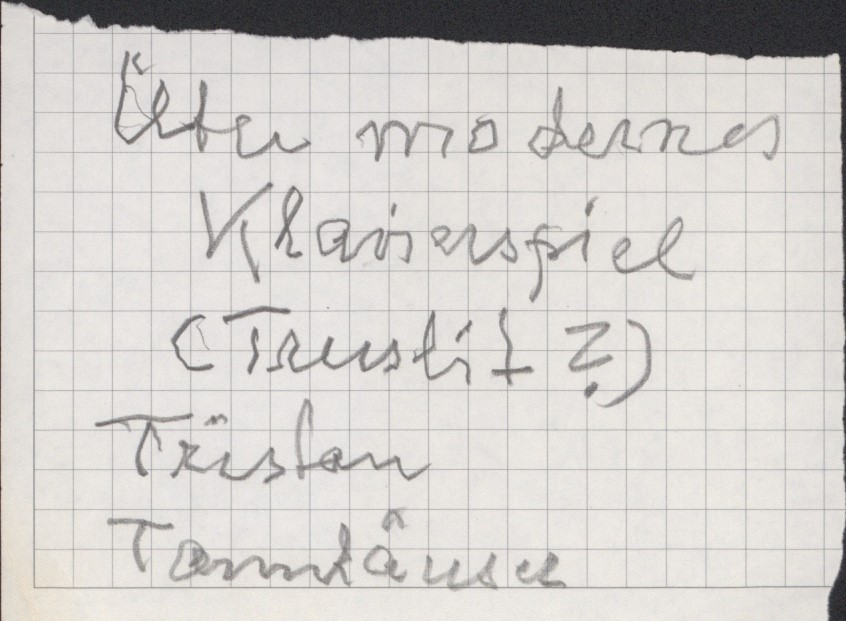 Über modernes
Klavierspiel
(Truslit?)
Tristan
Tannhäuser